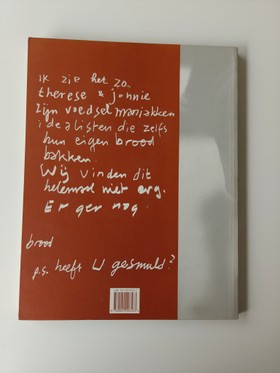 ik zie het zo.
therese & jonnie
zijn voedsel maniakken
idealisten die zelfs
hun eigen brood
bakken.
Wij vinden dit
helemaal niet erg.
Er ger nog.
brood
p.s. heeft U gesmuld?